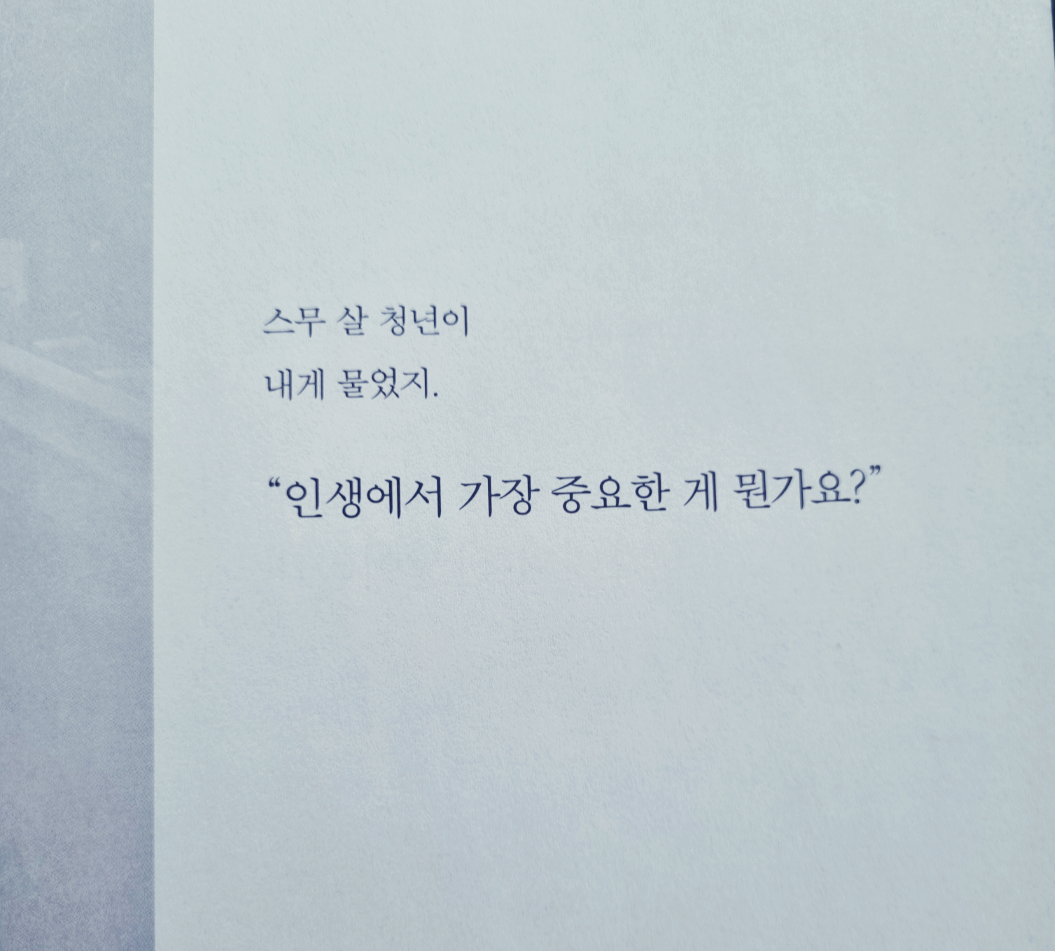 스무 살 청년이
내게 물었지.
“인생에서 가장 중요한 게 뭔가요?”